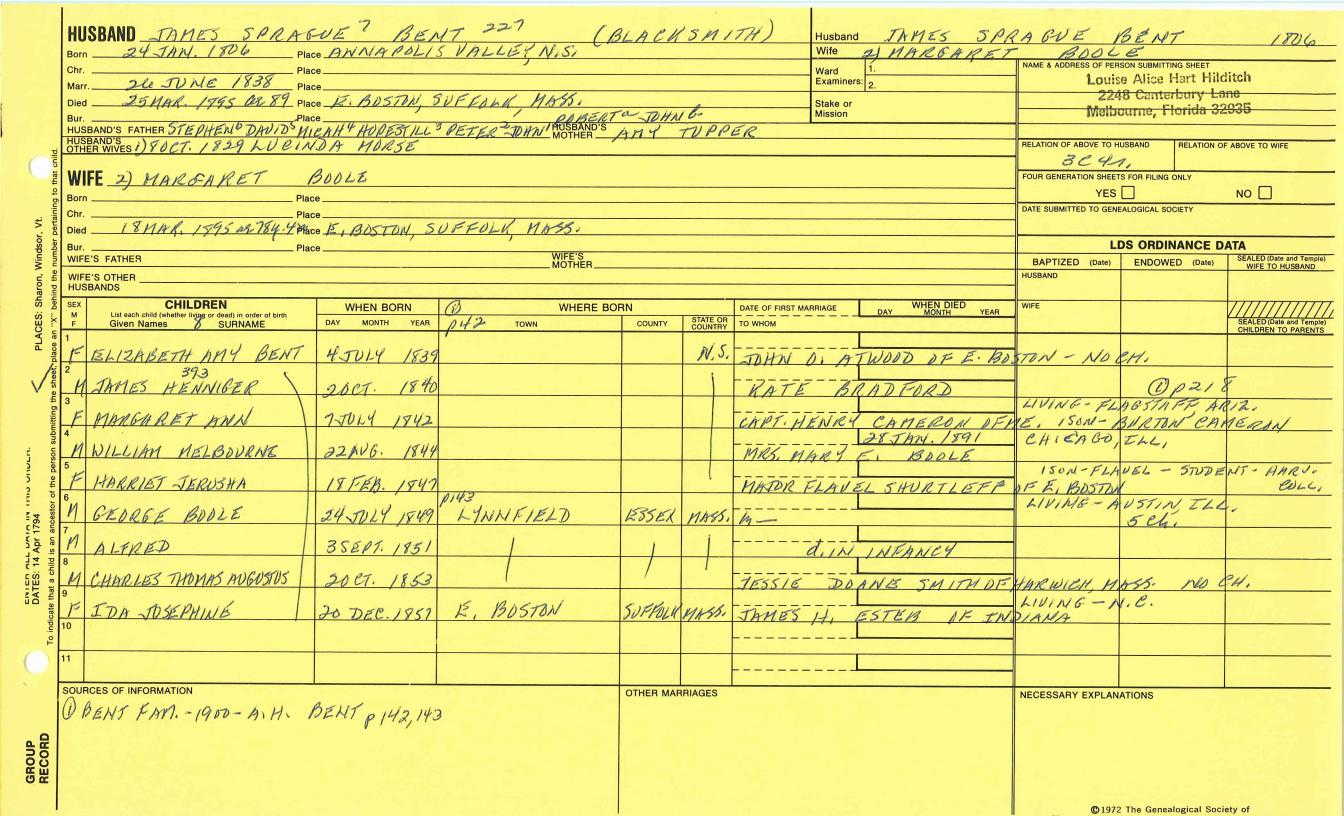 HUSBAND JAMES SPRAGUE 7 BENT 227 (BLACKSMITH)
Born 24 JAN. 1806 Place ANNAPOLIS VALLEY, N.S.
Chr. Place
Marr. 26 JUNE 1838 Place
Died 25 MAR. 1895 Place E. BOSTON, SUFFOLK, MASS.
Bur. Place ROBERT a JOHN b
HUSBAND'S FATHER STEPHEN 6 DAVID 5 MICAH 4 HOPESTILL 3 PETER 2 JOHN 1 HUSBAND'S MOTHER AMY TUPPER
HUSBAND'S OTHER WIVES 1) 8 OCT. 1829 LUCINDA MORSE
Husband JAMES SPRAGUE BENT 1806
Wife 2) MARGARET BOOLE
Ward Examiners: 1.
2.
Stake or Mission
NAME & ADDRESS OF PERSON SUBMITTING SHEET
Louise Alice Hart Hilditch
2246 Canterbury Lane
Melbourne, Florida 32935
RELATION OF ABOVE TO HUSBAND RELATION OF ABOVE TO WIFE
3C4r.
FOUR GENERATION SHEETS FOR FILING ONLY
YES NO
DATE SUBMITTED TO GENEALOGICAL SOCIETY
WIFE 2) MARGARET BOOLE
Born Place
Chr. Place
Died 18 MAR. 1895 Place E. BOSTON, SUFFOLK, MASS.
Bur. Place
WIFE'S FATHER WIFE'S MOTHER
WIFE'S OTHER HUSBANDS
LDS ORDINANCE DATA
BAPTIZED (Date) ENDOWED (Date) SEALED (Date and Temple) WIFE TO HUSBAND
HUSBAND
WIFE
SEALED (Date and Temple) CHILDREN TO PARENTS
SEX M F CHILDREN WHEN BORN ① WHERE BORN DATE OF FIRST MARRIAGE WHEN DIED
List each child (whether living or dead) in order of birth
Given Names 8 SURNAME DAY MONTH YEAR p142 TOWN COUNTY STATE OR COUNTRY TO WHOM DAY MONTH YEAR
1 F ELIZABETH AMY BENT 4 JULY 1839 N.S. JOHN D. ATWOOD OF E. BOSTON - NO CH.
393
2 M JAMES HENNIGER 2 OCT. 1840 KATE BRADFORD ① p218
LIVING - FLAGSTAFF, ARIZ.
3 F MARGARET ANN 7 JULY 1842 CAPT. HENRY CAMERON OF ME. 1 SON - BURTON CAMERON
28 JAN. 1891 CHICAGO, ILL.
4 M WILLIAM MELBOURNE 22 AUG. 1844 MRS. MARY E. BOOLE
1 SON - FLAVEL - STUDENT - HARV. COLL.
5 F HARRIET JERUSHA 18 FEB. 1847 MAJOR FLAVEL SHURTLEFF OF E. BOSTON
p143 LIVING - AUSTIN, ILL.
6 M GEORGE BOOLE 24 JULY 1849 LYNNFIELD ESSEX MASS. m— 5 Ch.
7 M ALFRED 3 SEPT. 1851 d. IN INFANCY
8 M CHARLES THOMAS AUGUSTUS 2 OCT. 1853 JESSIE DOANE SMITH OF HARWICH, MASS. NO CH.
LIVING - N.C.
9 F IDA JOSEPHINE 20 DEC. 1857 E. BOSTON SUFFOLK MASS. JAMES H. ESTEB OF INDIANA
10
11
SOURCES OF INFORMATION
① BENT FAM. - 1900 - A.H. BENT p142,143
OTHER MARRIAGES
NECESSARY EXPLANATIONS
©1972 The Genealogical Society of
PLACES: Sharon, Windsor, Vt.
DATES: 14 Apr 1794
To indicate that a child is an ancestor of the person submitting the sheet, place an "X" behind the number pertaining to that child.
GROUP RECORD